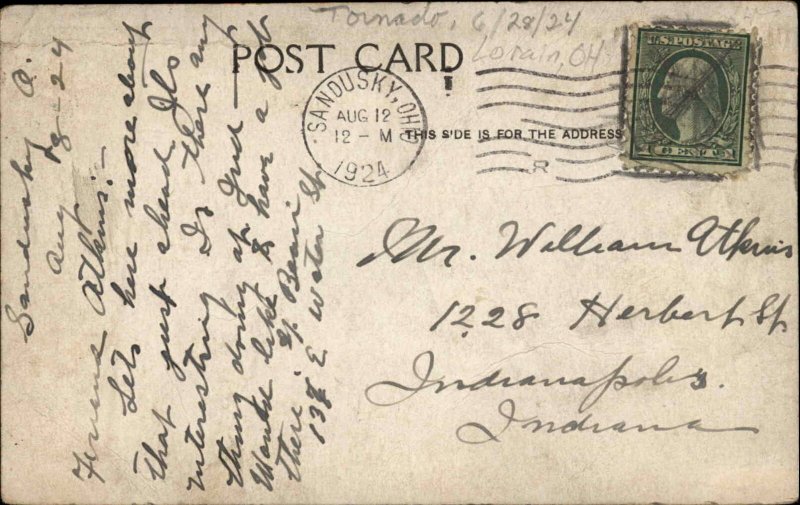 Tornado, 6/28/24
Lorain, OH
POST CARD
SANDUSKY, OHIO
AUG 12
12 - M
1924
THIS SIDE IS FOR THE ADDRESS
U.S. POSTAGE
1 CENT 1
Mr. William Atkins
1228 Herbert St
Indianapolis.
Indiana
Sandusky O.
Aug 24
Friend Atkins:-
Lets here more about
that just ahead Its
interesting Is there any
thing doing at Ind -
Would like to have a job
there.
138 E Water St.